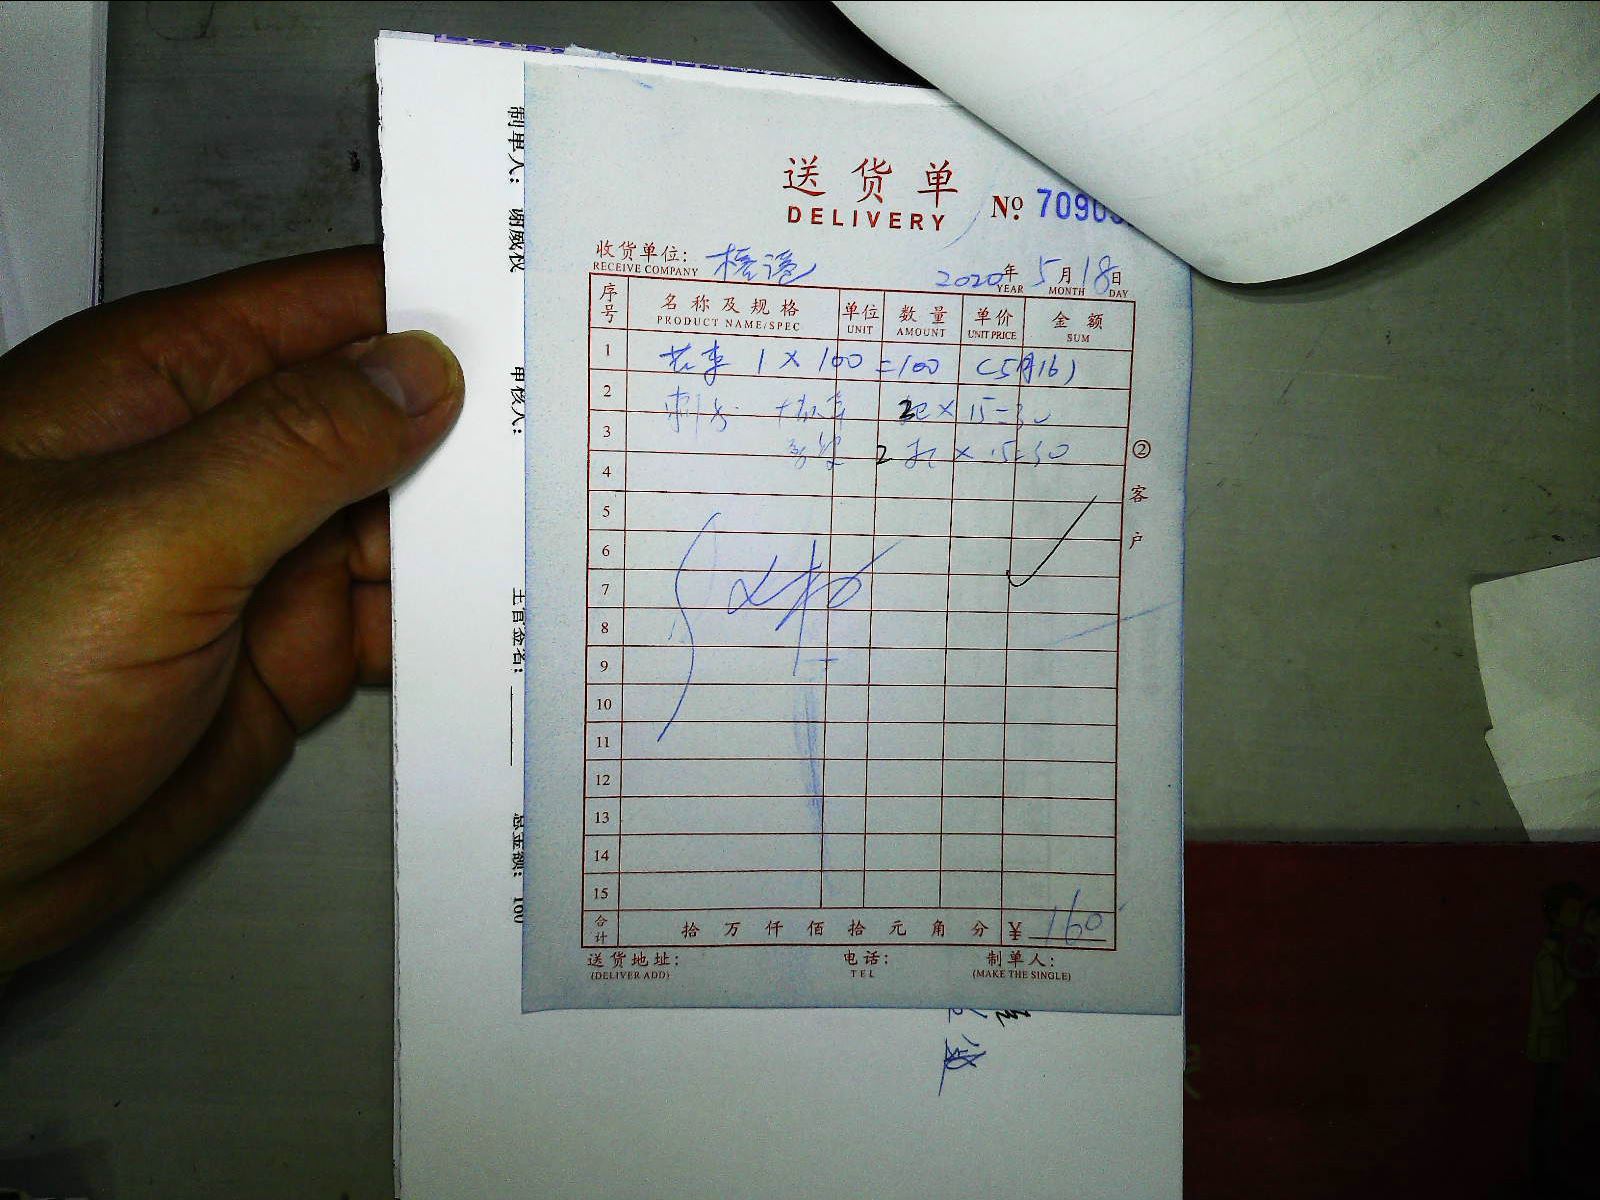 送货单
DELIVERY
No 7090
收货单位:
RECEIVE COMPANY
2020年 5月 18日
YEAR MONTH DAY
序号 名称及规格 单位 数量 单价 金额
PRODUCT NAME/SPEC UNIT AMOUNT UNIT PRICE SUM
1 花束 1 × 100 = 100 (5月16)
2 × 15=30
3 2 × 15=30
4
5
6
7
8
9
10
11
12
13
14
15
合计 拾 万 仟 佰 拾 元 角 分 ¥ 160
送货地址: 电话: 制单人:
(DELIVER ADD) TEL (MAKE THE SINGLE)
② 客户
制单人: 谢威权
审核人:
主管签名:
总金额: 160